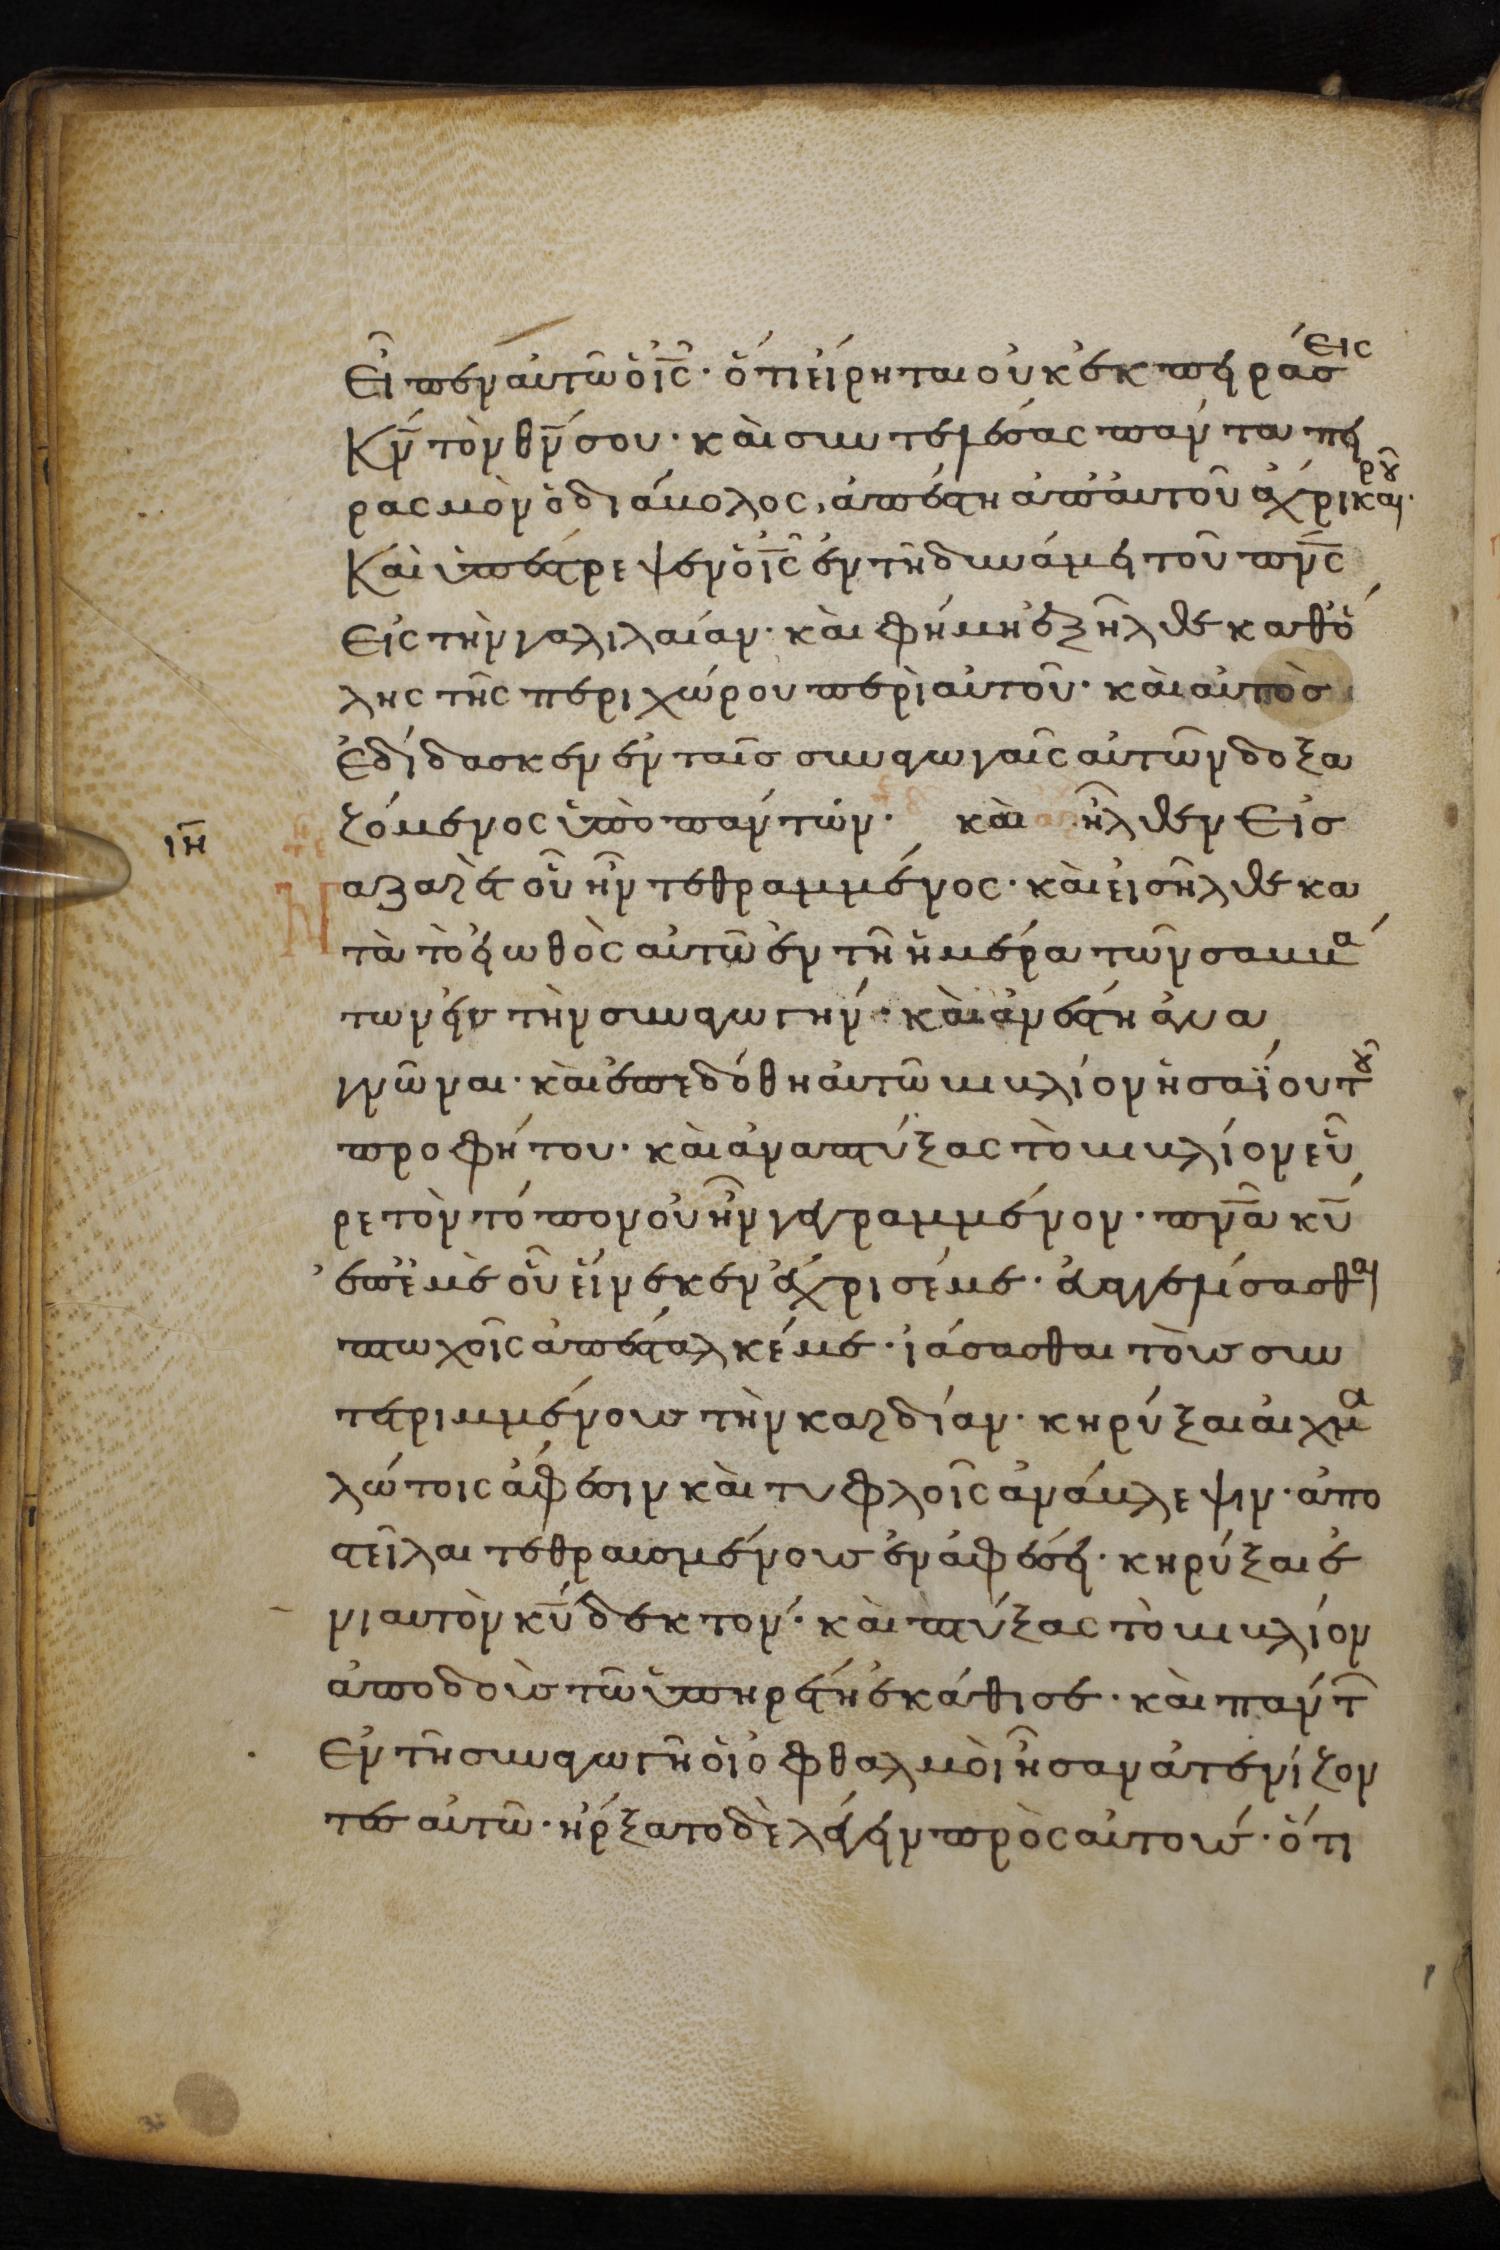 εἶπεν αὐτῶ ὁ ἰ̅ς̅· ὅτι εἴρηται οὐκ ἐκπειράσεις
κ̅ν̅ τὸν θ̅ν̅ σου· καὶ συντελέσας πάντα πει
ρασμὸν ὁ διάβολος, ἀπέστη ἀπ' αὐτοῦ ἄχρι καιροῦ·
Καὶ ὑπέστρεψεν ὁ ἰ̅ς̅ ἐν τῆ δυνάμει τοῦ π̅ν̅ς̅
εἰς τὴν γαλιλαίαν· καὶ φήμη ἐξῆλθε καθ' ὅ
λης τῆς περιχώρου περὶ αὐτοῦ· καὶ αὐτὸς
ἐδίδασκεν ἐν ταῖς συναγωγαῖς αὐτῶν δοξα
ζόμενος ὑπὸ πάντων· καὶ ἦλθεν εἰς
ιη̅ Ναζαρὲτ οὗ ἦν τεθραμμένος· καὶ εἰσῆλθε κα
τὰ τὸ εἰωθὸς αὐτῶ ἐν τῆ ἡμέρα τῶν σαββά
των εἰς τὴν συναγωγήν· καὶ ἀνέστη ἀνα
γνῶναι· καὶ ἐπεδόθη αὐτῶ βιβλίον ἡσαΐου τοῦ
προφήτου· καὶ ἀναπτύξας τὸ βιβλίον εὗ
ρε τὸν τόπον οὗ ἦν γεγραμμένον· π̅ν̅α̅ κ̅υ̅
ἐπ' ἐμὲ οὗ εἵνεκεν ἔχρισέ με· εὐαγγελίσασθαι
πτωχοῖς ἀπέσταλκέ με· ἰάσασθαι τοὺς συν
τετριμμένους τὴν καρδίαν· κηρύξαι αἰχμα
λώτοις ἄφεσιν καὶ τυφλοῖς ἀνάβλεψιν· ἀπο
στεῖλαι τεθραυσμένους ἐν ἀφέσει· κηρύξαι ἐ
νιαυτὸν κ̅υ̅ δεκτόν· καὶ πτύξας τὸ βιβλίον
ἀποδοὺς τῶ ὑπηρέτη ἐκάθισε· καὶ πάντ
ἐν τῆ συναγωγῆ οἱ ὀφθαλμοὶ ἦσαν ἀτενίζον
τες αὐτῶ· ἤρξατο δὲ λέγειν πρὸς αὐτούς· ὅτι